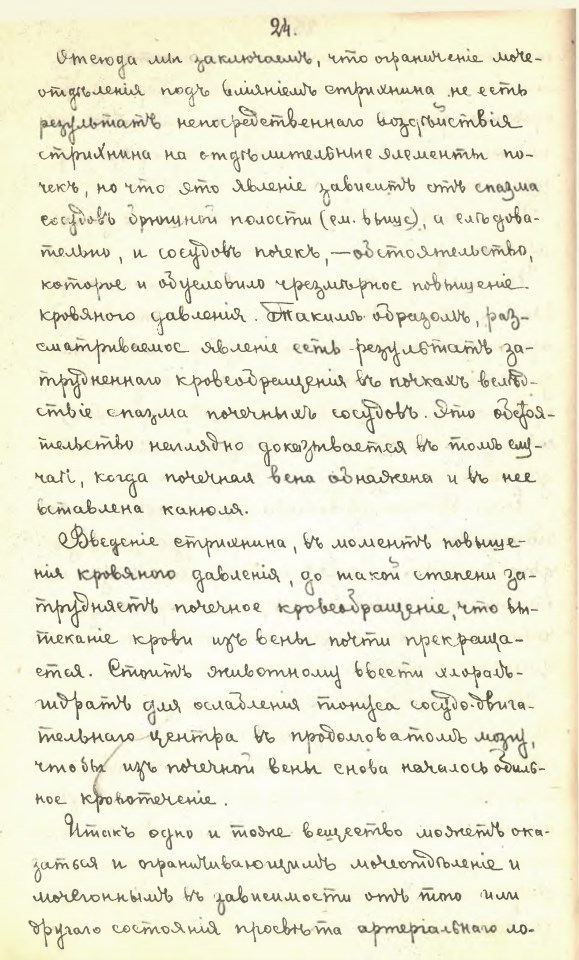 24.
Отсюда мы заключаемъ, что ограниченіе моче-
отдѣленія подъ вліяніемъ стрихнина не есть
результатъ непосредственнаго воздѣйствія
стрихнина на отдѣлительные элементы по-
чекъ, но что это явленіе зависитъ отъ спазма
сосудовъ брюшной полости (см. выше), а слѣдова-
тельно, и сосудовъ почекъ, — обстоятельство,
которое и обусловило чрезмѣрное повышеніе
кровяного давленія. Такимъ образомъ, раз-
сматриваемое явленіе есть результатъ за-
трудненнаго кровеобращенія въ почкахъ вслѣд-
ствіе спазма почечныхъ сосудовъ. Это обстоя-
тельство наглядно доказывается въ томъ слу-
чаѣ, когда почечная вена обнажена и въ нее
вставлена канюля.
Введеніе стрихнина, въ моментъ повыше-
нія кровяного давленія, до такой степени за-
трудняетъ почечное кровеобращеніе, что вы-
теканіе крови изъ вены почти прекраща-
ется. Стоитъ животному ввести хлоралъ-
гидратъ для ослабленія тонуса сосудо-двига-
тельнаго центра въ продолговатомъ мозгу,
чтобы изъ почечной вены снова началось обиль-
ное кровотеченіе.
Итакъ одно и тоже вещество можетъ ока-
заться и ограничивающимъ мочеотдѣленіе и
мочегоннымъ въ зависимости отъ того или
другаго состоянія просвѣта артеріальнаго ло-